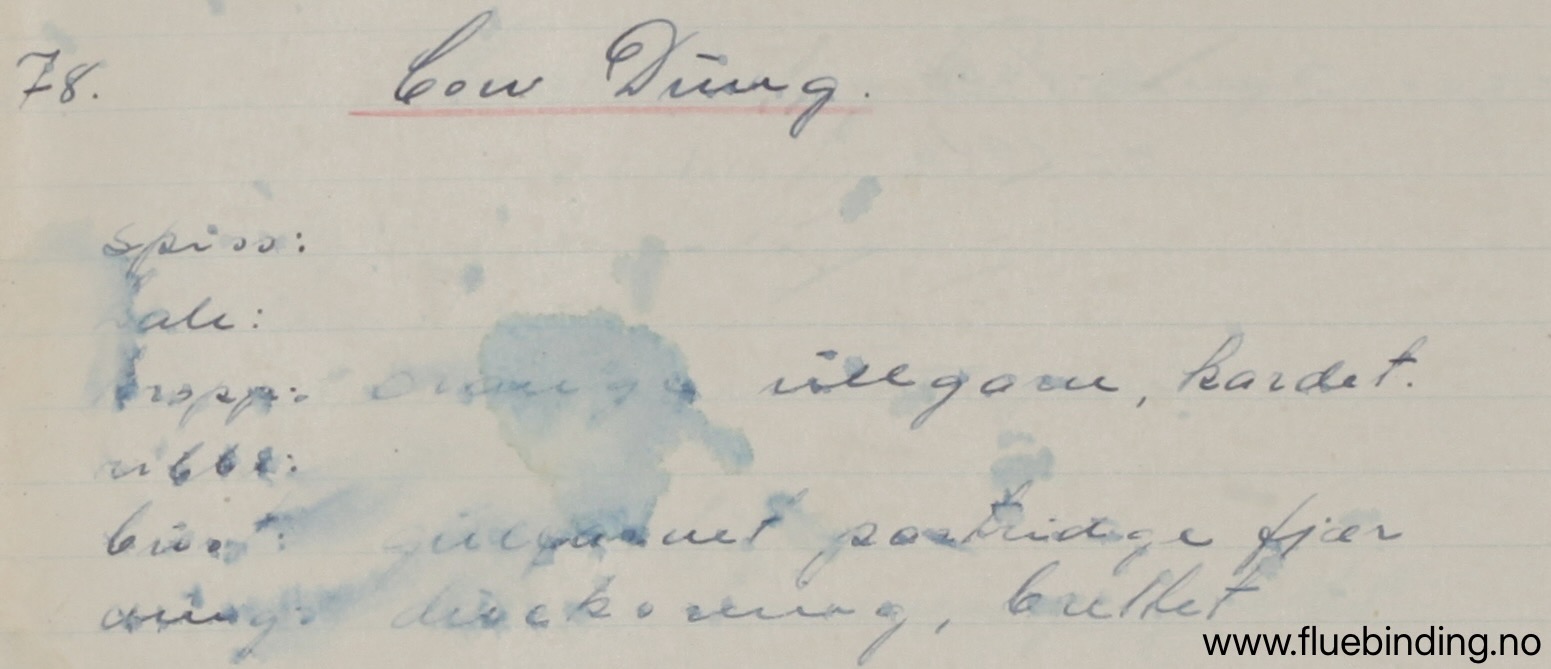 78. Cow Dung.
spiss:
hale:
kropp: orange ullgarn, kardet.
ribbe:
bust: partridge fjær
ving: brettet
www.fluebinding.no